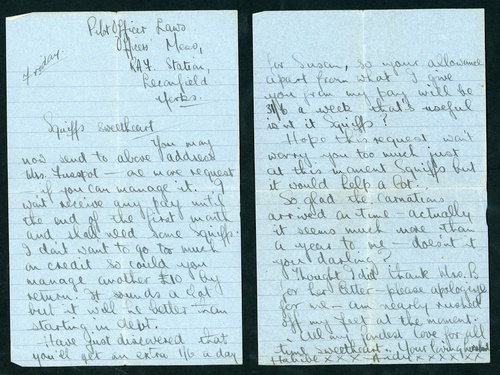 Pilot Officer Laws
Officers Mess,
RAF Station,
Leconfield
Yorks.
Friday.
Squiffs sweetheart
You may
now send to above address
Mrs. - one more request
if you can manage it. I
won't receive any pay until
the end of the first month
and shall need some Squiffs.
I don't want to go to much
on credit so could you
manage another £10 by
return? It sounds a lot
but it will be better than
starting in debt.
Have just discovered that
you'll get an extra 1/6 a day
for Susan, so your allowance
apart from what I give
you from my pay will be
a week that's useful
isn't it Squiffs?
Hope this request won't
worry you too much just
at this moment Squiffs but
it would help a lot.
So glad the carnations
arrived on time - actually
it seems much more than
a year to me - doesn't it
you darling?
Thought I did thank Mrs. B
for her letter - please apologise
for me - am nearly rushed
off my feet at the moment.
All my fondest love for all
time sweetheart. Your loving husband